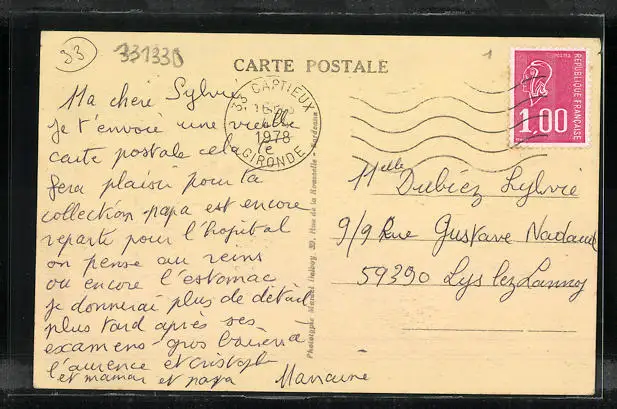 33
331330
1
CARTE POSTALE
33 CAPTIEUX
1978
GIRONDE
POSTES
REPUBLIQUE FRANÇAISE
1,00
Ma chère Sylvie
je t'envoie une vieille
carte postale cela te
fera plaisir pour ta
collection papa est encore
reparti pour l'hopital
on pense au reins
ou encore l'estomac
je donnerai plus de détail
plus tard après ses
examens gros baisers à
laurence et cristoph
et maman et papa
Phototypie Marcel Delboy
11elle Dubiez Sylvie
9/9 Rue Gustave Nadaud
59390 Lys lez Lannoy